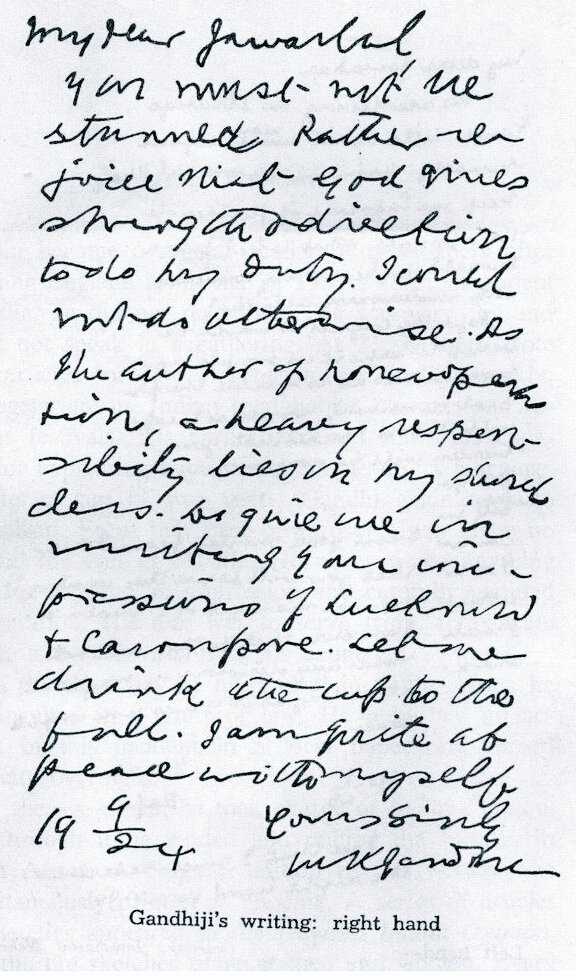 My dear Jawarlal,
You must not be
stunned. Rather re
joice that God gives
strength & direction
to do my duty. I could
not do otherwise. As
the author of noncoopera
tion, a heavy respon-
sibility lies on my shoul
ders. Do give me in
writing your im-
pressions of Lucknow
& Cawnpore. Let me
drink the cup to the
full. I am quite at
peace with myself.
Yours sincly
19 9/24 MKGandhi
Gandhiji's writing: right hand